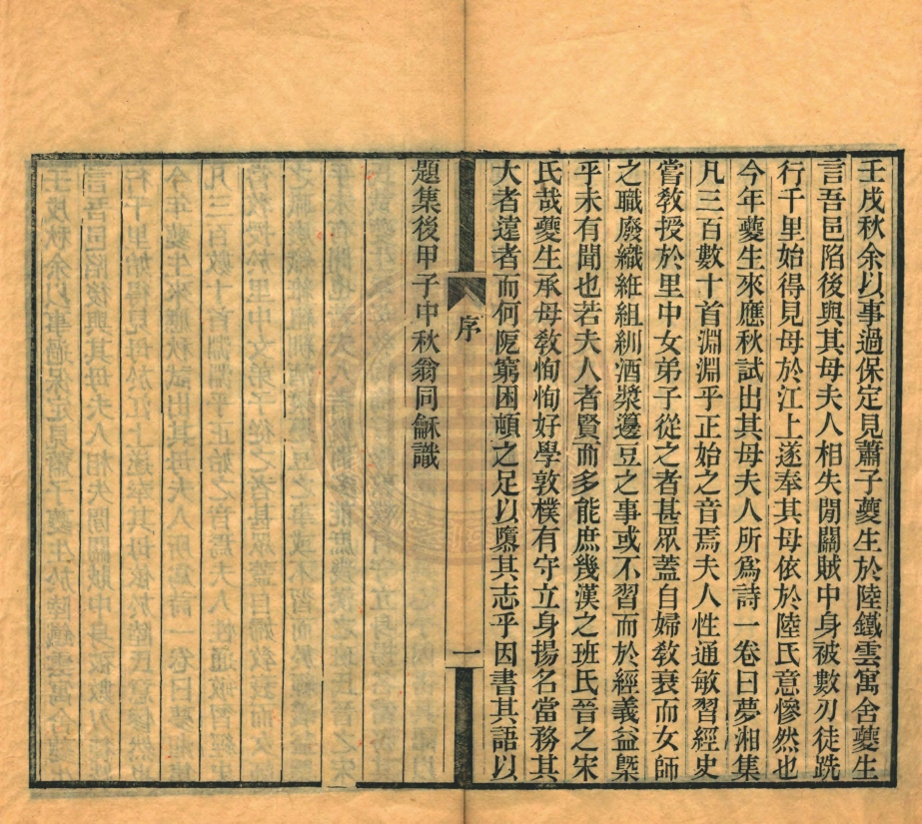 壬戌秋余以事過保定見蕭子夔生於陸鐵雲寓舍夔生
言吾邑陷後與其母夫人相失閒關賊中身被數刃徒跣
行千里始得見母於江上遂奉其母依於陸氏意慘然也
今年夔生來應秋試出其母夫人所爲詩一卷曰夢湘集
凡三百數十首淵淵乎正始之音焉夫人性通敏習經史
嘗教授於里中女弟子從之者甚眾蓋自婦教衰而女師
之職廢織維組紃酒漿籩豆之事或不習而於經義益槩
乎未有聞也若夫人者賢而多能庶幾漢之班氏晉之宋
氏哉夔生承母教恂恂好學敦樸有守立身揚名當務其
大者遠者而何阨窮困頓之足以隳其志乎因書其語以
序
一
題集後甲子中秋翁同龢識